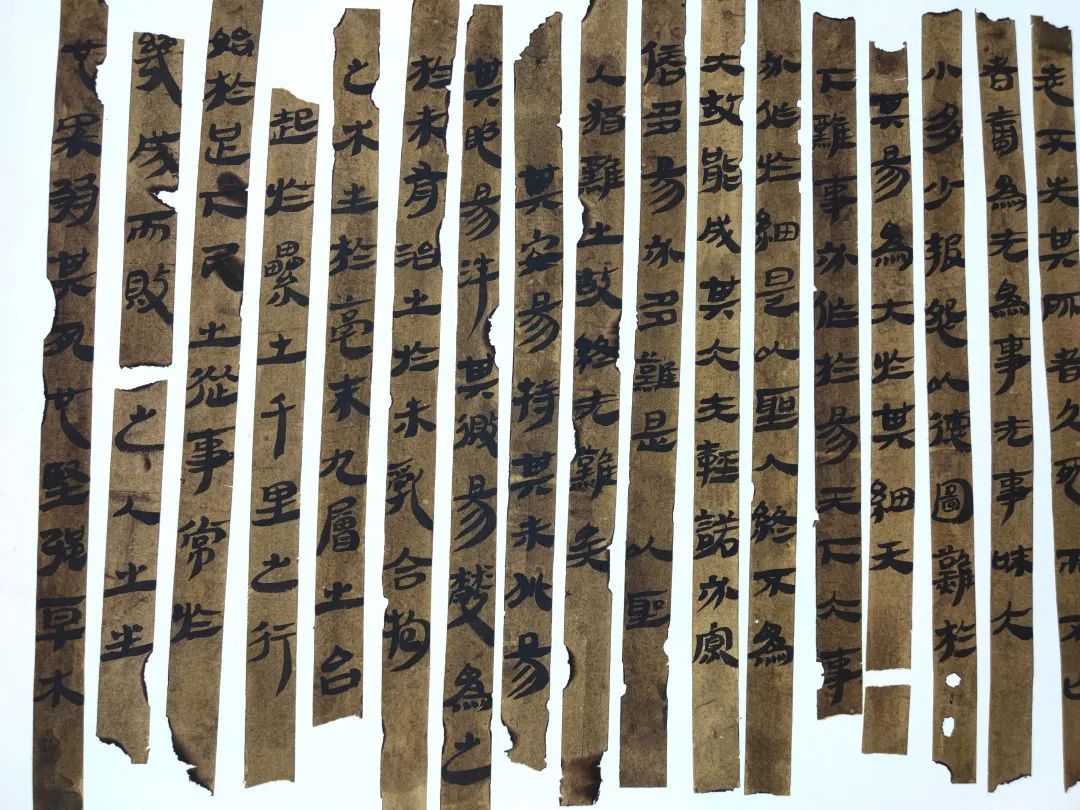 不失其所者久死而不亡
者啬為无為事无事味大
小多少报怨以德圖難於
其易為大於其細天
下難事亦作於易天下大事
亦作於細是以聖人終不為
大故能成其大夫輕諾亦寡
信多易亦多難是以聖
人猶難之故終无難矣
其安易持其未兆易
其脆易泮其微易散為之
於未有治之於未亂合抱
之木生於毫末九層之台
起於纍土千里之行
始於足下民之從事常於
幾成而敗
之人之生
也柔弱其死也堅强草木